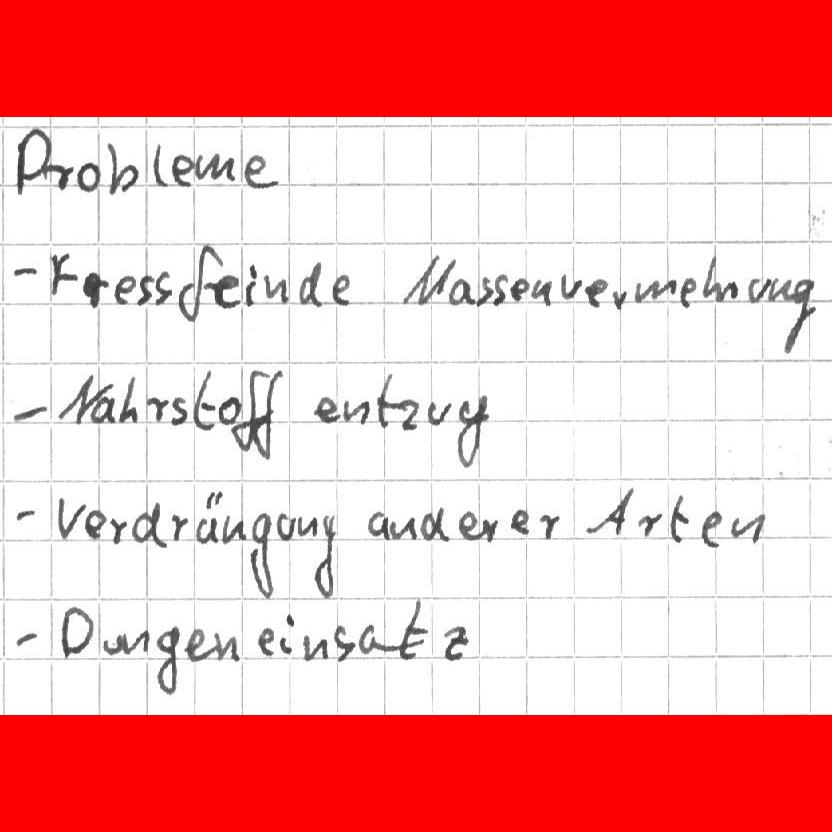 Probleme
- Fressfeinde Massenvermehrung
- Nährstoff entzug
- Verdrängung anderer Arten
- Dungeneinsatz